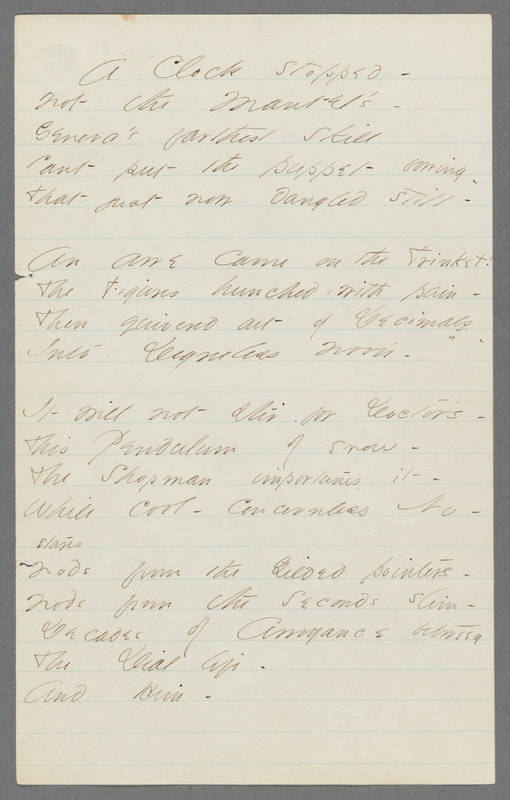 A Clock stopped -
not the Mantel's -
Geneva's farthest skill
Cant put the puppet bowing -
that just now dangled still -
An awe came on the Trinket!
The Figures hunched, with pain -
Then quivered out of Decimals
Into Degreeless noon -
It will not stir for Doctor's -
this Pendulum of snow -
the Shopman importunes it -
While cool - Concernless No -
stares
nods from the Gilded pointers -
nods from the Seconds slim -
Decades of Arrogance between
the Dial life -
And Him -